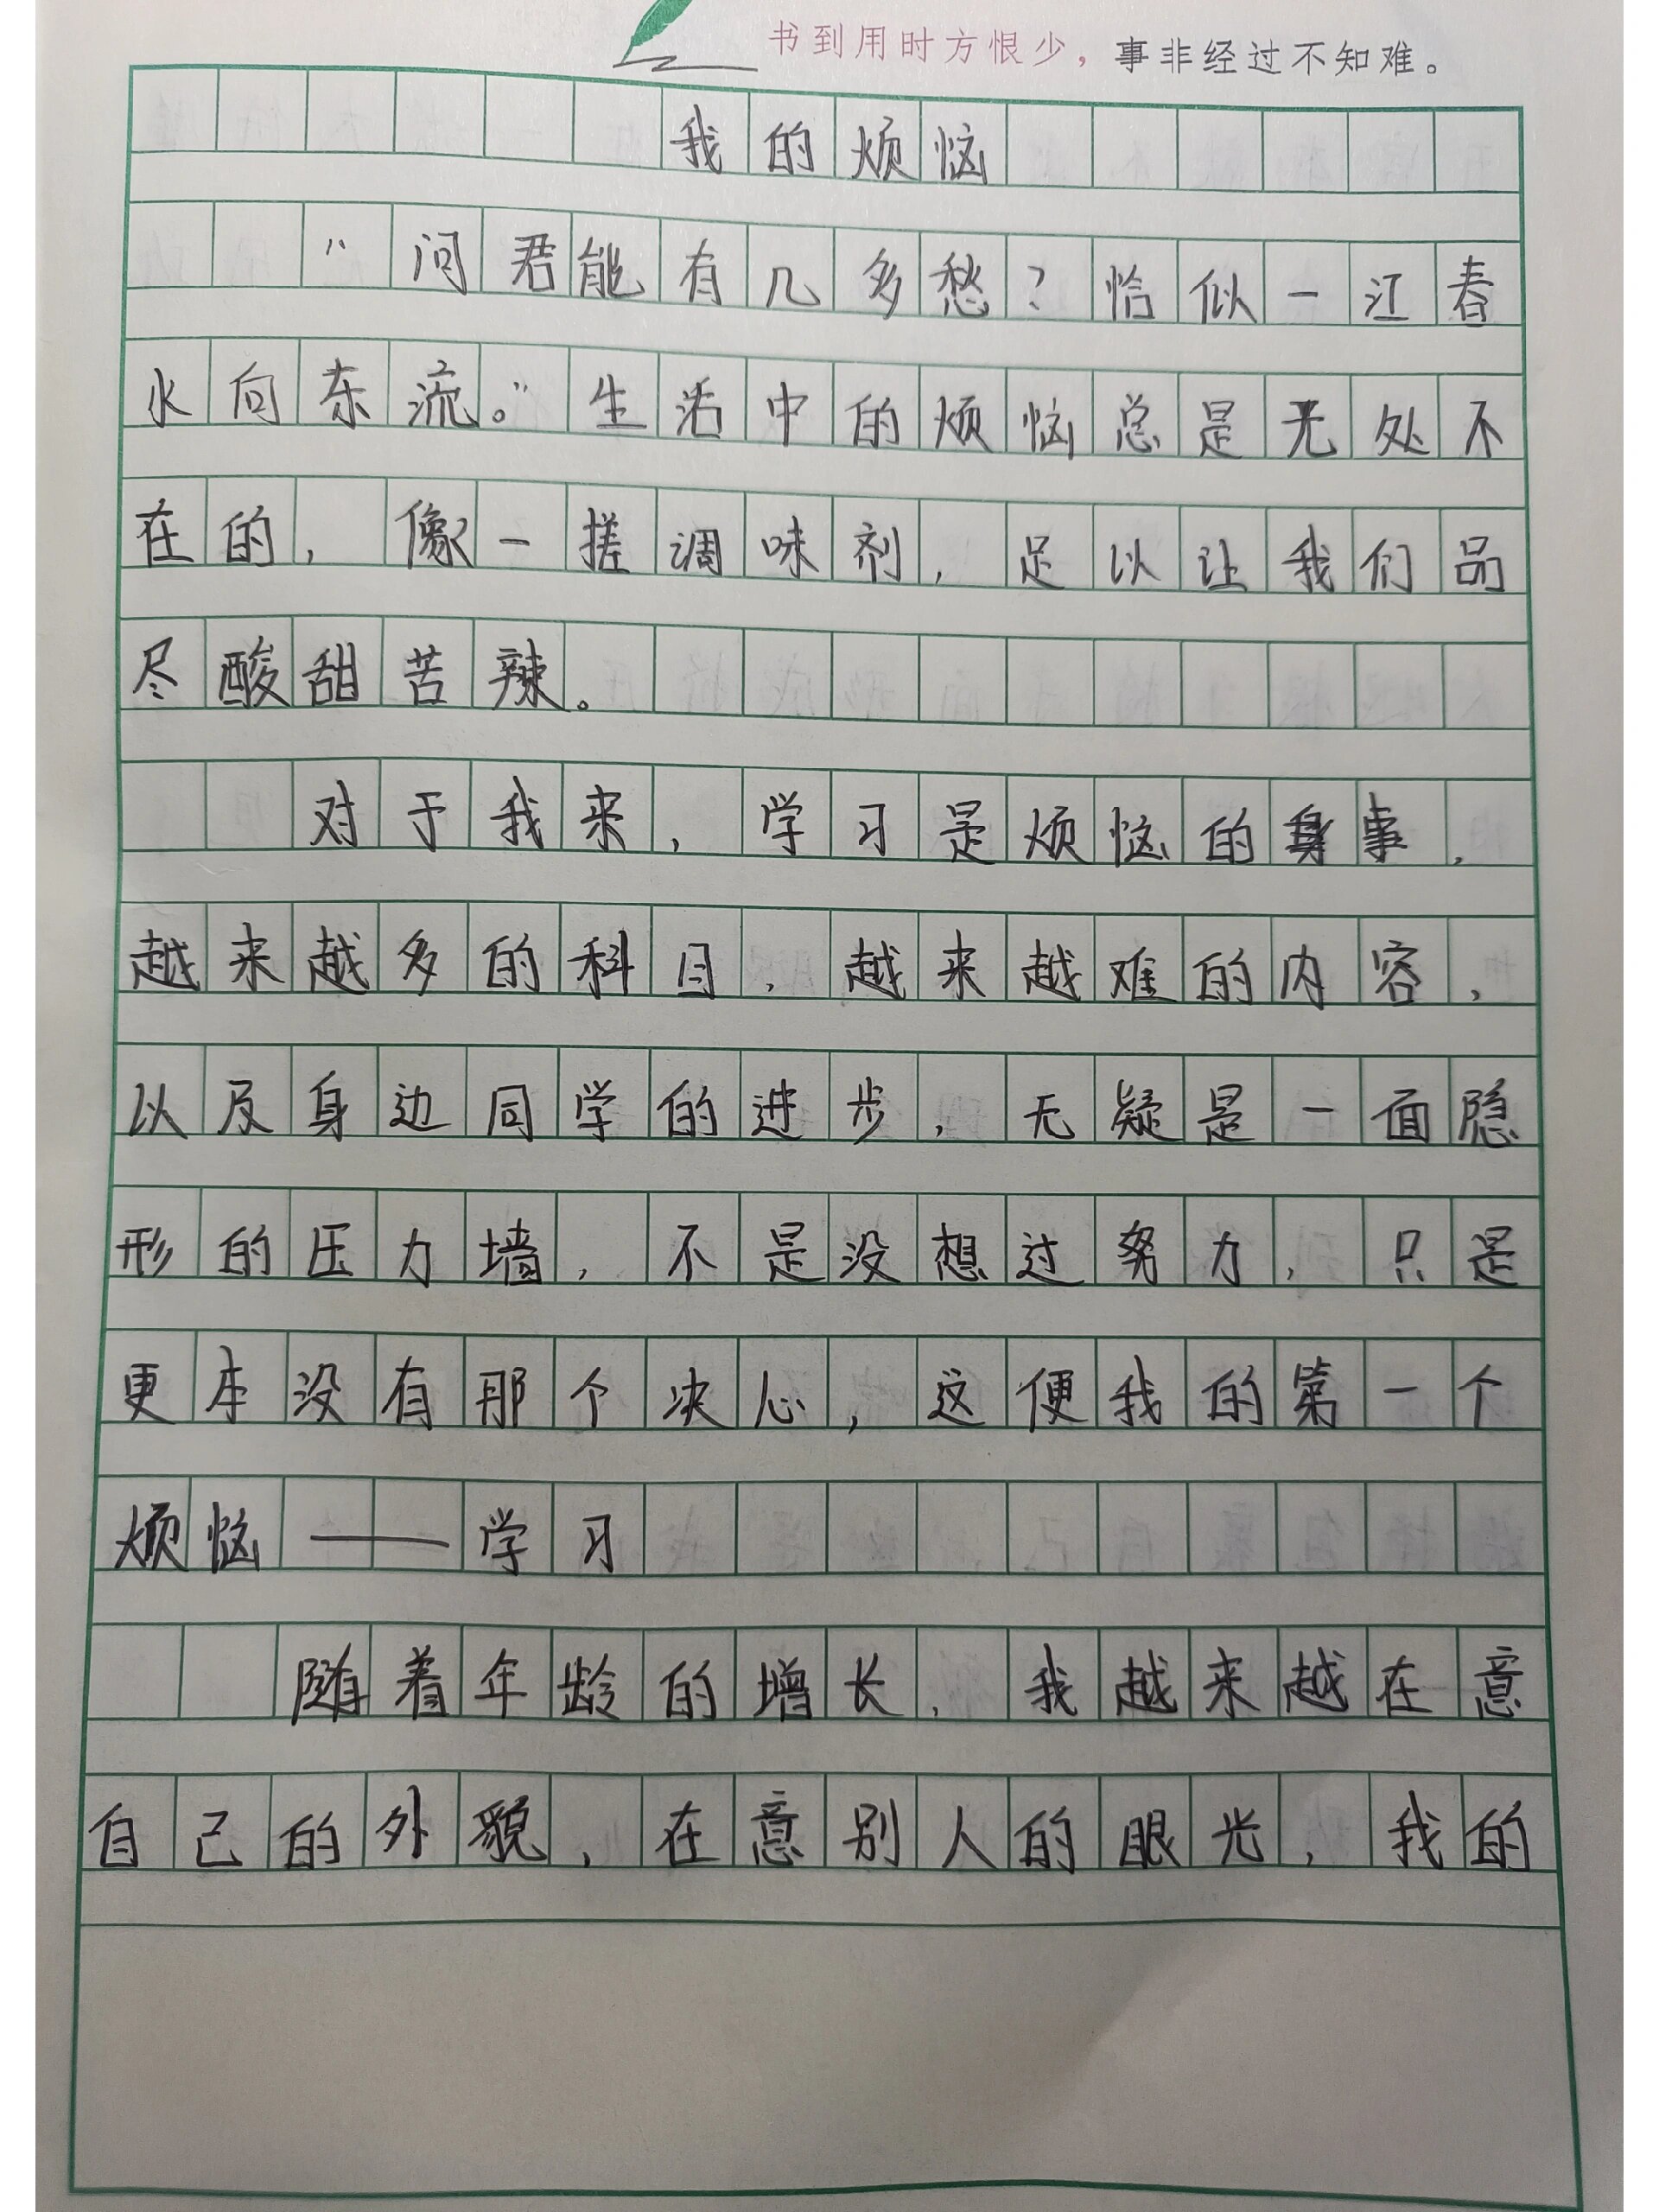 书到用时方恨少，事非经过不知难。
我的烦恼
“问君能有几多愁？恰似一江春
水向东流。”生活中的烦恼总是无处不
在的，像一搓调味剂，足以让我们品
尽酸甜苦辣。
对于我来，学习是烦恼的事，
越来越多的科目，越来越难的内容，
以及身边同学的进步，无疑是一面隐
形的压力墙，不是没想过努力，只是
更本没有那个决心，这便我的第一个
烦恼——学习
随着年龄的增长，我越来越在意
自己的外貌，在意别人的眼光，我的